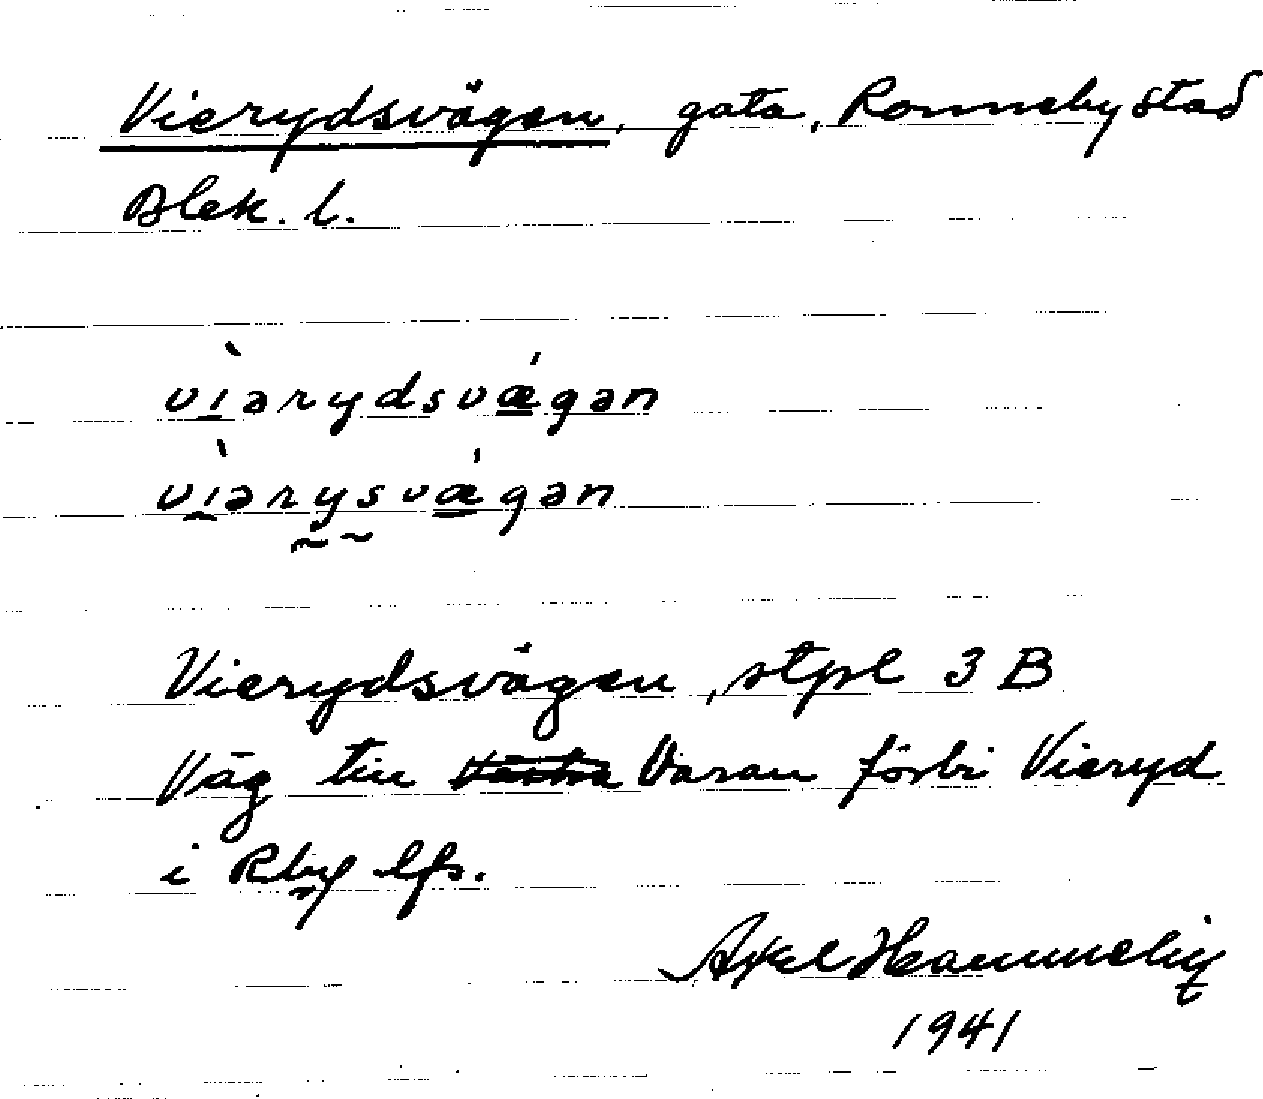 Vierydsvägen, gata, Ronneby stad
Blek. l.
vìərydsvǽgən
vìərysvǽgən
Vierydsvägen, stpl 3 B
Väg till Varan förbi Vieryd
i Rby lfs.
Axel Hammelig
1941